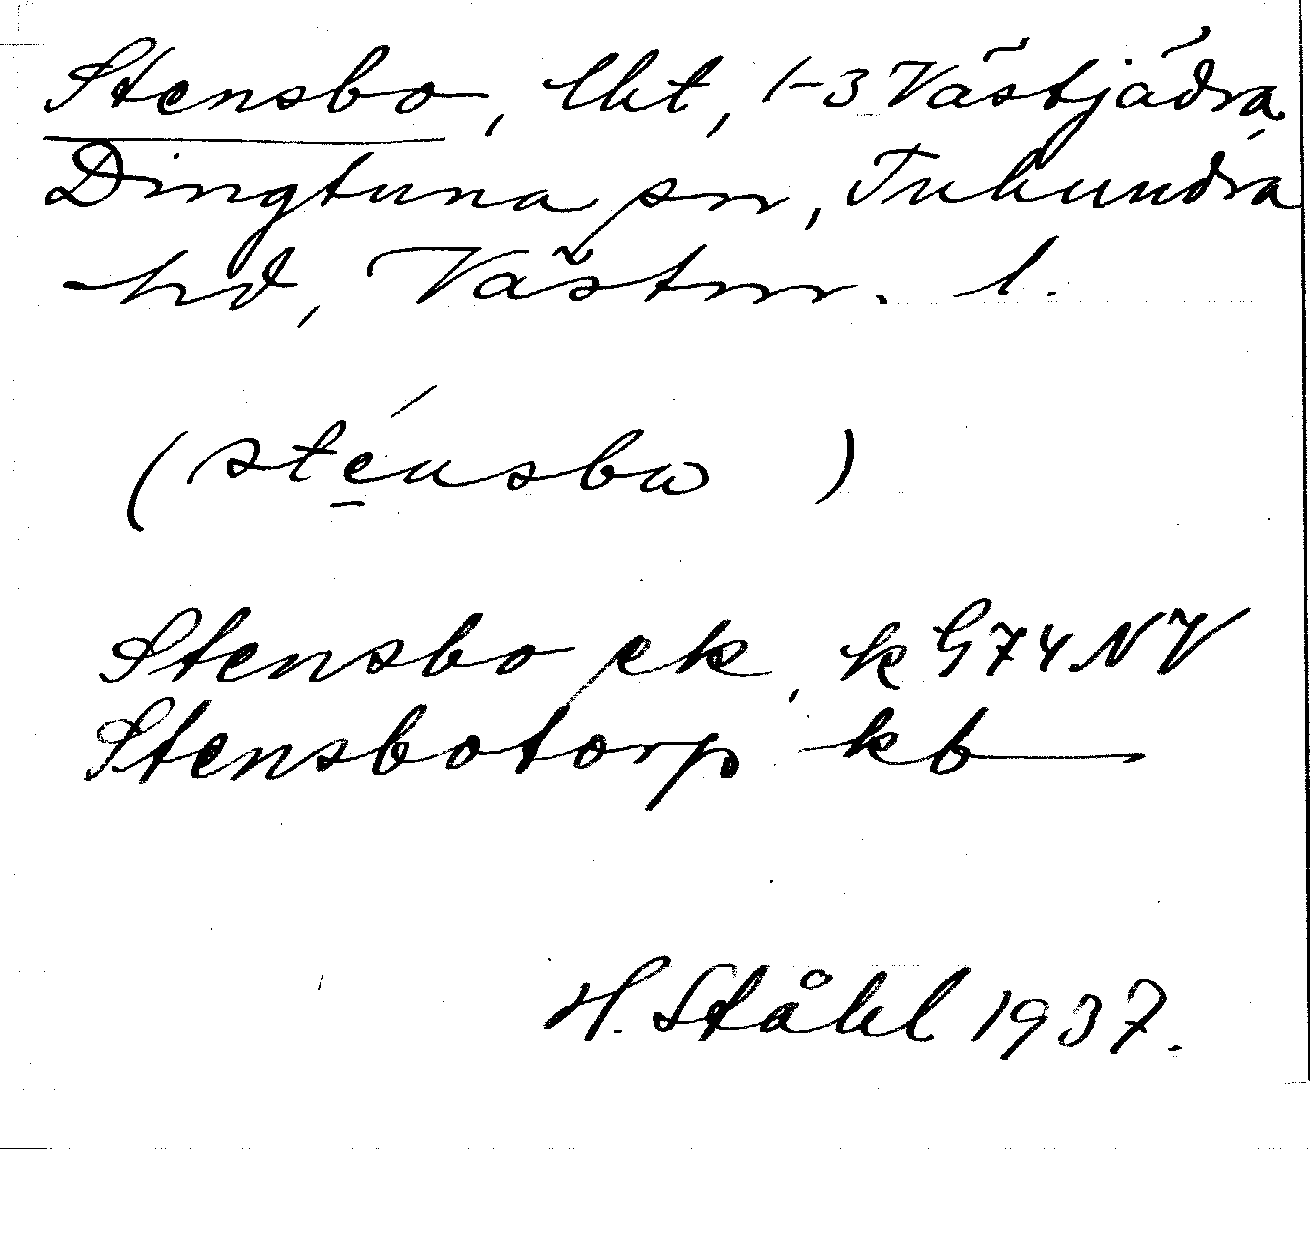 Stensbo, lht, 1-3 Västjädra,
Dingtuna sn, Tuhundra
hd, Västm. l.
(sté̱nsbω )
Stensbo ek, k G74NV
Stensbotorp kb
H. Ståhl 1937.